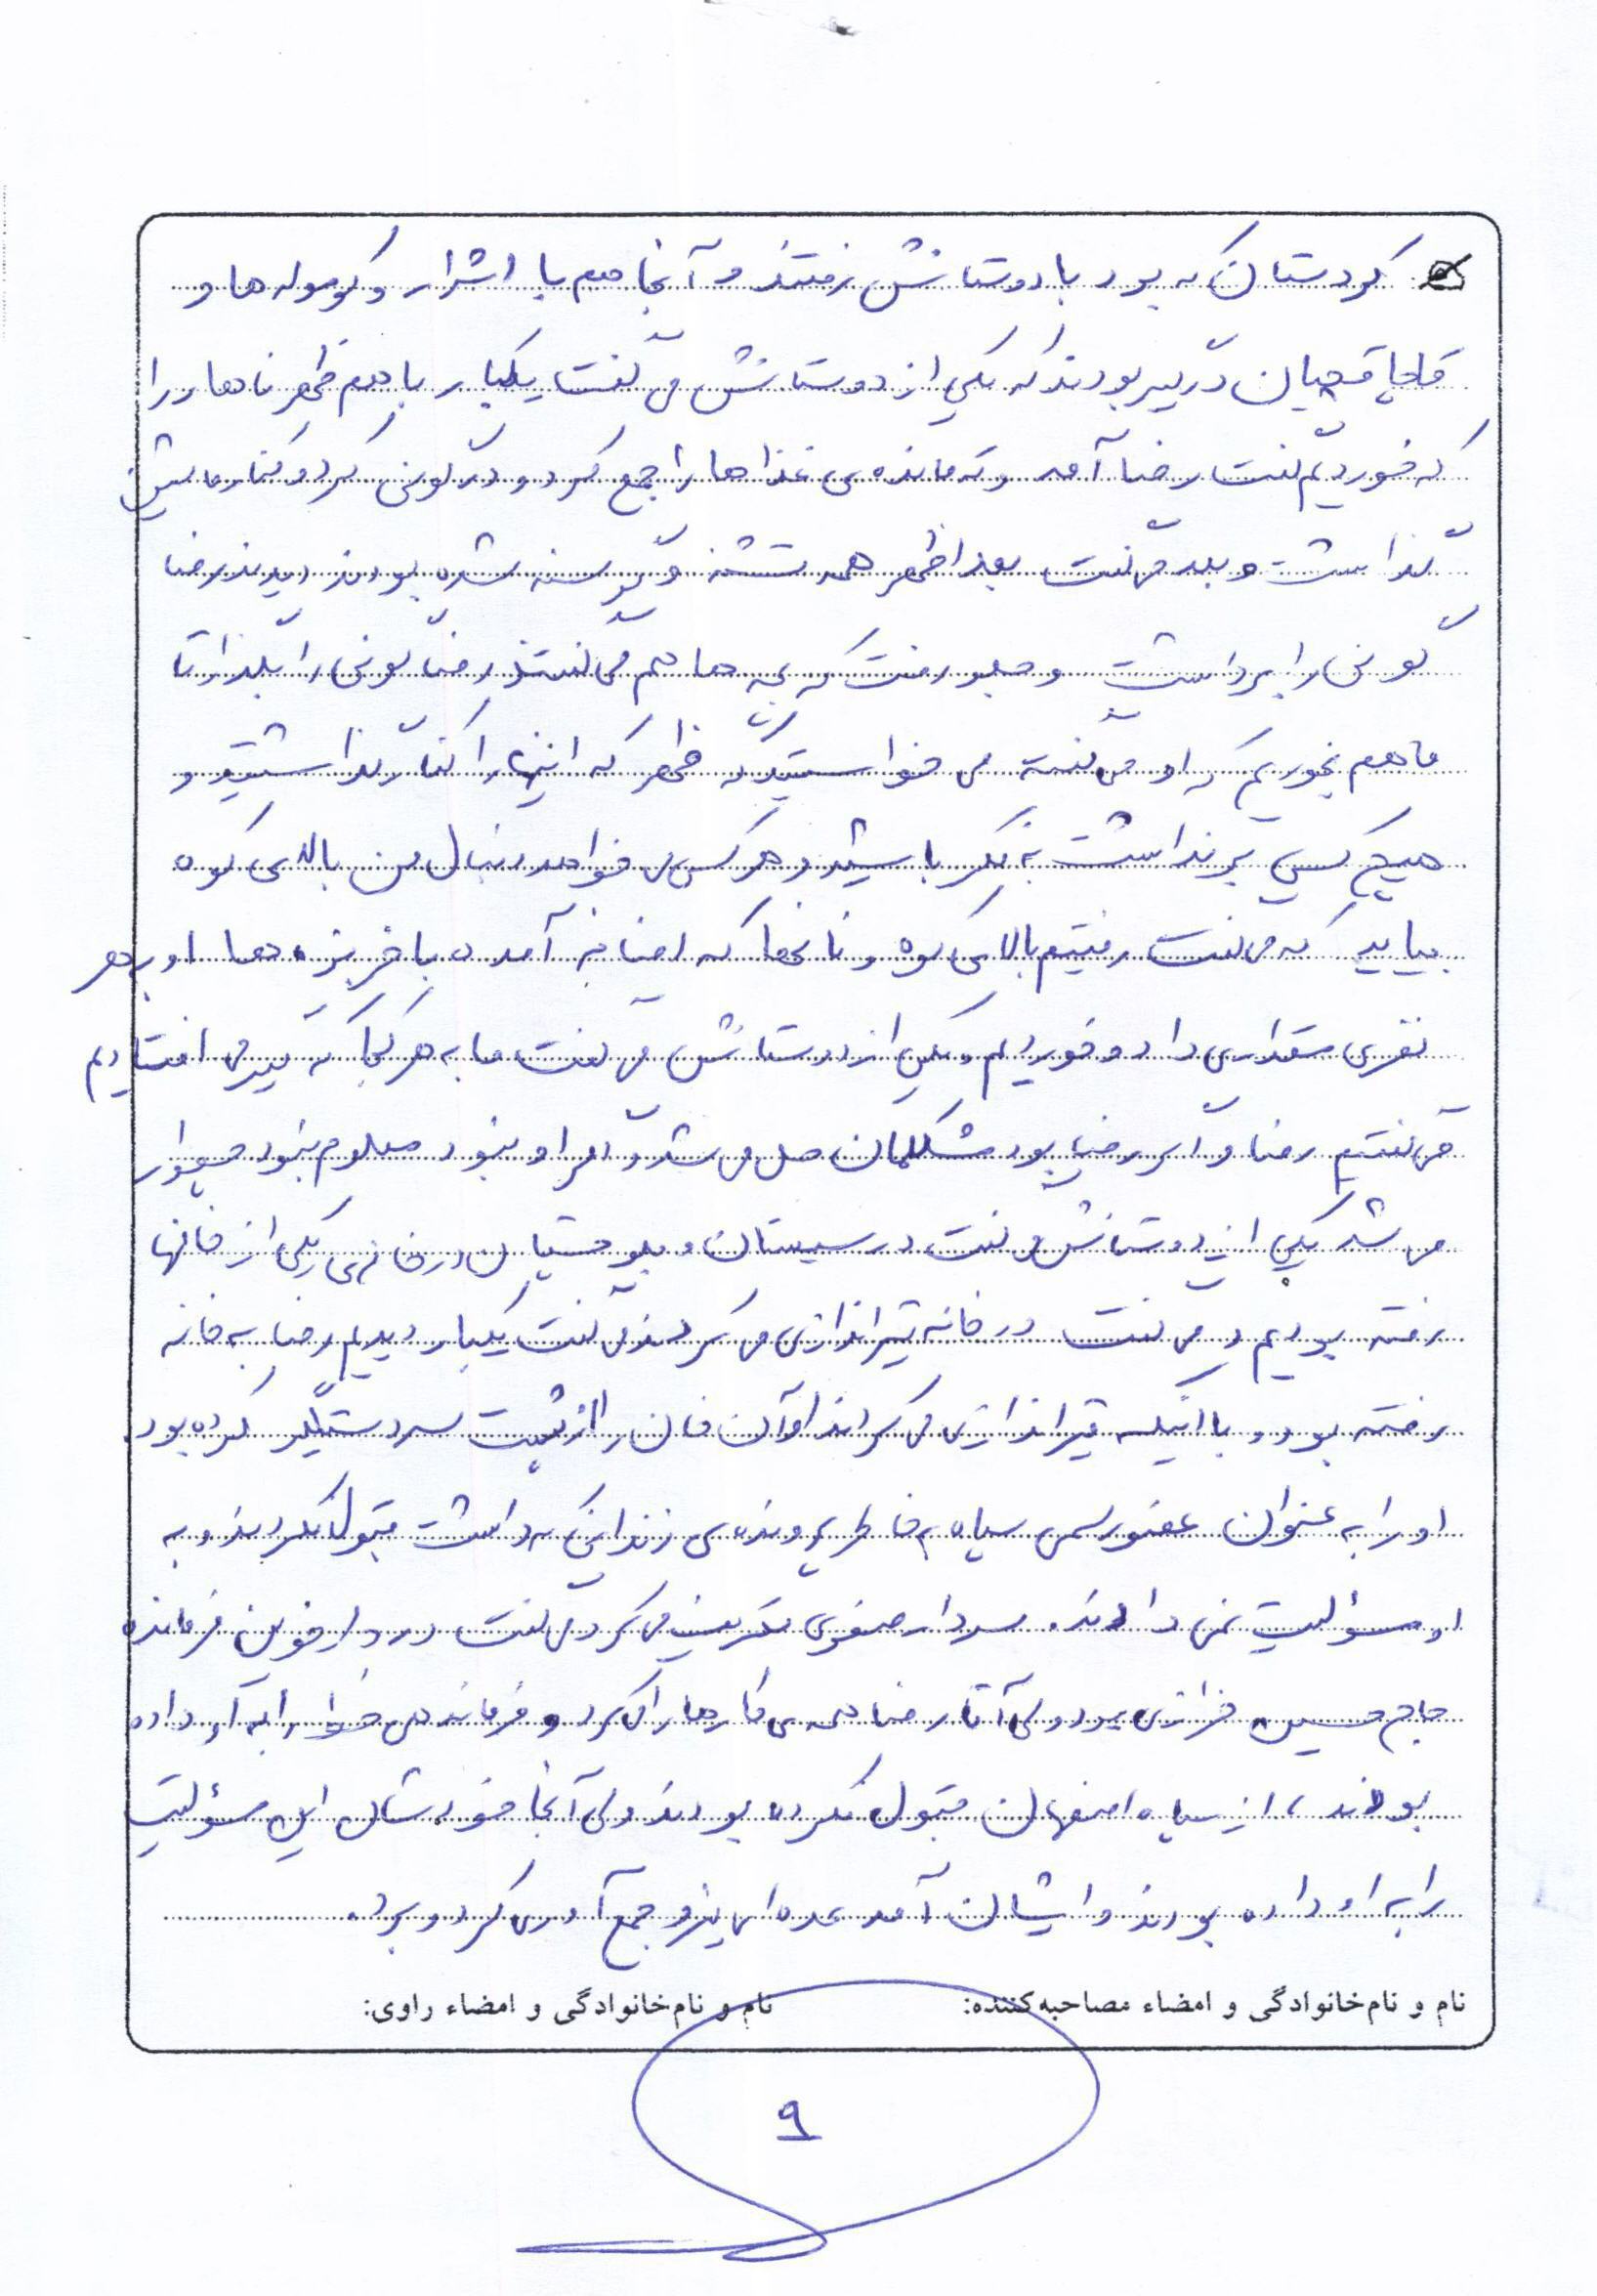 کردستان که بود با دوستانش رفتند و آنجا هم با اشرار و کوموله ها و
قاچاقچیان درگیر بودند که یکی از دوستانش می گفت یکبار با هم ظهر ناهار را
که خوردیم گفت رضا آمد و ته مانده ی غذاها را جمع کرد و در گونی کرد و کنار ماشین
گذاشت و بعد می گفت بعد از ظهر همه تشنه و گرسنه شده بودند دیدند رضا
گونی را برداشت و جلو رفت که بچه ها هم می گفتند رضا گونی را بگذار تا
ما هم بخوریم که او می گفت می خواستید که ظهر که اینها را کنار گذاشتید و
هیچ کسی برنداشت به فکر باشید و هر کس می خواهد دنبال من بالای کوه
بیاید که می گفت رفتیم بالای کوه و نانها که اضافه آمده با خربزه ها او به هر
نفری مقداری داد و خوردیم و یکی از دوستانش می گفت ما به هر کجا که گیر می افتادیم
می گفتیم رضا و اگر رضا بود مشکلمان حل می شد و اگر او نبود معلوم نبود چطور
می شد یکی از دوستانش می گفت در سیستان و بلوچستان در خانه ی یکی از خانها
رفته بودیم و می گفت در خانه تیراندازی می کردند می گفت یکبار دیدیم رضا به خانه
رفته بود و با اینکه تیراندازی می کردند او آن خان را از پشت سر دستگیر کرده بود.
او را به عنوان عضو رسمی سپاه به خاطر پرونده ی زندانی که داشت قبول نکردند و به
او مسؤلیت نمی دادند. سردار صفوی تعریف می کرد می گفت در دارخوین فرمانده
حاج حسین خرازی بود ولی آقا رضا همه ی کارها را می کرد و فرماندهی خط را به او داده
بودند، از سپاه اصفهان قبول نکرده بودند ولی آنجا خودشان این مسؤلیت
را به او داده بودند و ایشان آمد عده ای نیرو جمع آوری کرد و برد.
نام و نام‌خانوادگی و امضاء مصاحبه‌کننده: نام و نام‌خانوادگی و امضاء راوی:
۹